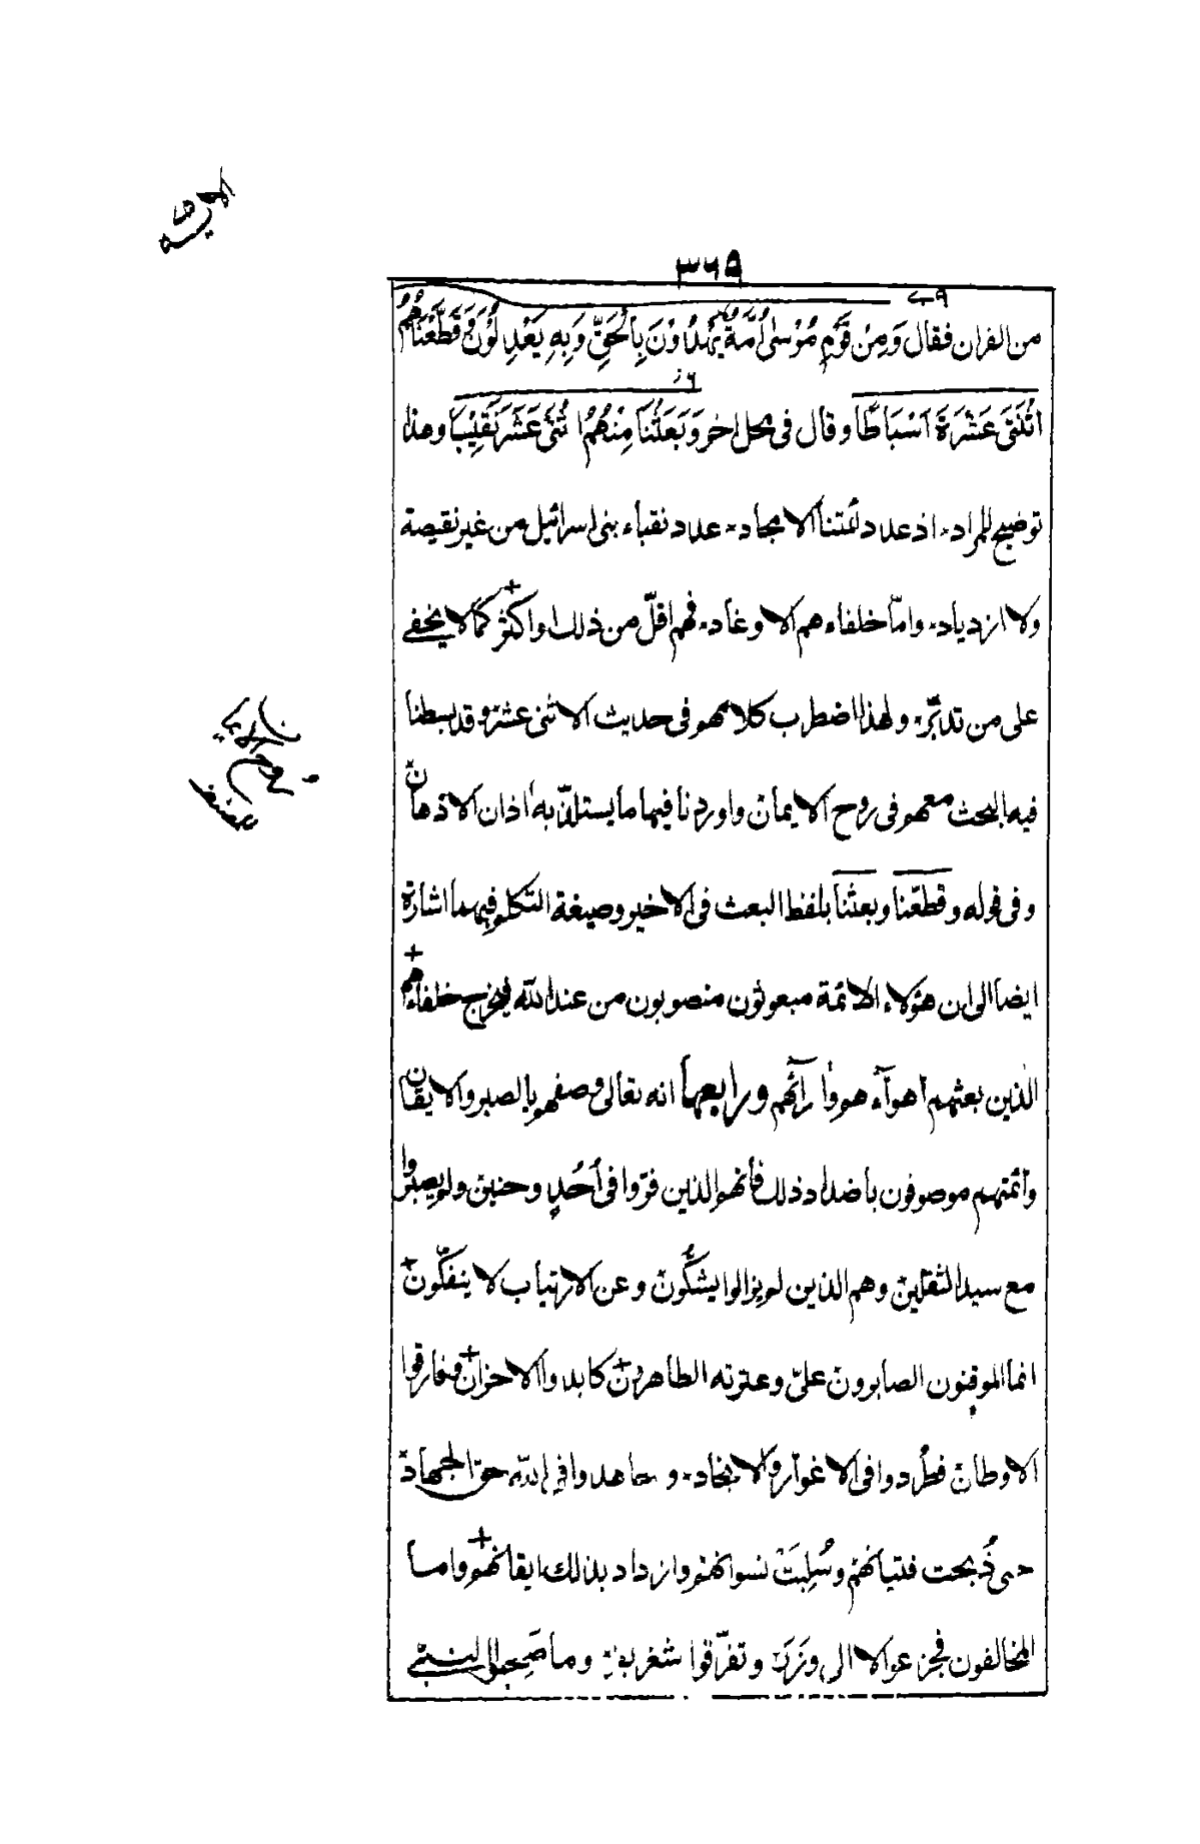 ٣٦٩
من القران فقال وَمِنْ قَوْمِ مُوْسٰى اُمَّةٌ يَّهْدُوْنَ بِالْحَقِّ وَبِهٖ يَعْدِلُوْنَ وَقَطَّعْنَاهُمُ
اثْنَتَىْ عَشْرَةَ اَسْبَاطًا وقال فى محل اخر وَبَعَثْنَا مِنْهُمُ اثْنَىْ عَشَرَ نَقِيْبًا وهذا
توضيح للمراد٭ اذ عدد ائمتنا الامجاد٭ عدد نقباء بنى اسرائيل من غير نقيصة
ولا ازدياد٭ وامّا خلفاءهم الاوغاد٭ فهم اقلّ من ذلك او اكثر كما لا يخفى
على من تدبّر٭ ولهذا اضطرب كلامهم فى حديث الاثنى عشر وقد بسطنا
فيه البحث معهم فى روح الايمان واوردنا فيها ما يستلذّ به اٰذان الاذهان
وفى قوله وقطّعنا وبعثنا بلفظ البعث فى الاخير وصيغة التكلم فيهما اشارة
ايضا الى ان هؤلاء الائمة مبعوثون منصوبون من عند الله فخرج خلفاءهم
الذين بعثهم اهوآءهم واٰرآئهم ورابعها انه تعالى وصفهم بالصبر والايقان
وائمتهم موصوفون باضداد ذلك فانهم الذين فرّوا فى اُحُدٍ وحنين ولم يصبروا
مع سيد الثقلين وهم الذين لم يزالوا يشكّون وعن الارتياب لا ينفكّون
انما الموقنون الصابرون علىّ وعترته الطاهرون كابدوا الاحزان وفارقوا
الاوطان فطُردوا فى الاغوار والانجاد٭ وجاهدوا فى الله حق الجهاد
حتى ذُبحت فتيانهم وسُلِبَتْ نسوانهم وازداد بذلك ايقانهم واما
المخالفون فجزعوا لا الى وَزَرَ٭ وتفرّقوا شغر بغر٭ وما صَحِبوا النبى
روح الايمان